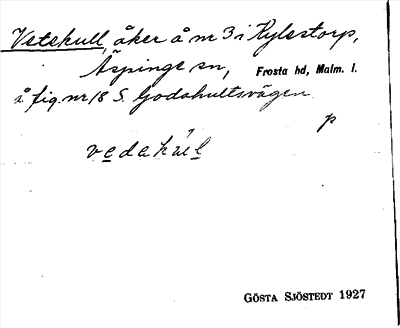 Vetekull, åker å nr 3 i Kylestorp,
Äspinge sn, Frosta hd, Malm. l.
å fig. nr 18 S. Godahultsvägen.
p
vedakul
GÖSTA SJÖSTEDT 1927